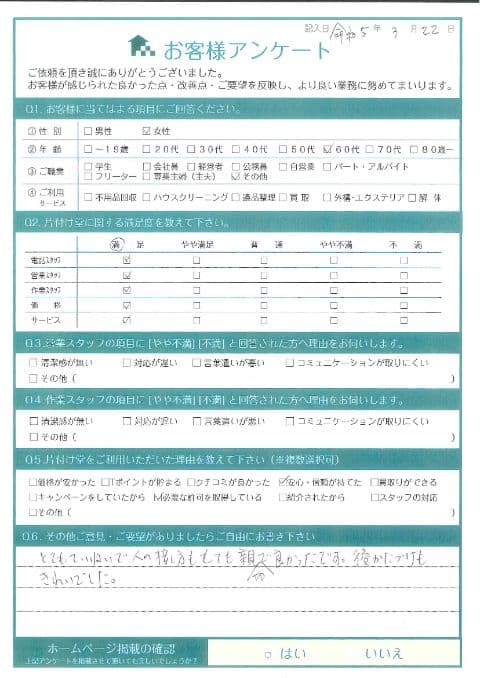 記入日 令和5年 3月 22日
お客様アンケート
ご依頼を頂き誠にありがとうございました。
お客様が感じられた良かった点・改善点・ご要望を反映し、より良い業務に努めてまいります。
Q1. お客様に当てはまる項目にご回答ください。
①性 別 □男性 ☑女性
②年 齢 □～19歳 □20代 □30代 □40代 □50代 ☑60代 □70代 □80歳～
③ご職業 □学生 □会社員 □経営者 □公務員 □自営業 □パート・アルバイト
□フリーター □専業主婦(主夫) ☑その他
④ご利用サービス □不用品回収 □ハウスクリーニング □遺品整理 □買 取 □外構・エクステリア □解 体
Q2. 片付け堂に関する満足度を教えて下さい。
満 足 やや満足 普 通 やや不満 不 満
電話スタッフ ☑ □ □ □ □
営業スタッフ ☑ □ □ □ □
作業スタッフ ☑ □ □ □ □
価 格 ☑ □ □ □ □
サービス ☑ □ □ □ □
Q3. 営業スタッフの項目に [やや不満] [不満] と回答された方へ理由をお伺いします。
□清潔感が無い □対応が遅い □言葉遣いが悪い □コミュニケーションが取りにくい
□その他 ( )
Q4. 作業スタッフの項目に [やや不満] [不満] と回答された方へ理由をお伺いします。
□清潔感が無い □対応が遅い □言葉遣いが悪い □コミュニケーションが取りにくい
□その他 ( )
Q5. 片付け堂をご利用いただいた理由を教えて下さい (※複数選択可)
□価格が安かった □Tポイントが貯まる □クチコミが良かった ☑安心・信頼が持てた □買取りができる
□キャンペーンをしていたから ☑必要な許可を取得している □紹介されたから □スタッフの対応
□その他 ( )
Q6. その他ご意見・ご要望がありましたらご自由にお書き下さい
とてもていねいで人の接し方もとても親切で良かったです。後かたづけも
きれいでした。
ホームページ掲載の確認 □ はい いいえ
上記アンケートを掲載させて頂いても宜しいでしょうか?